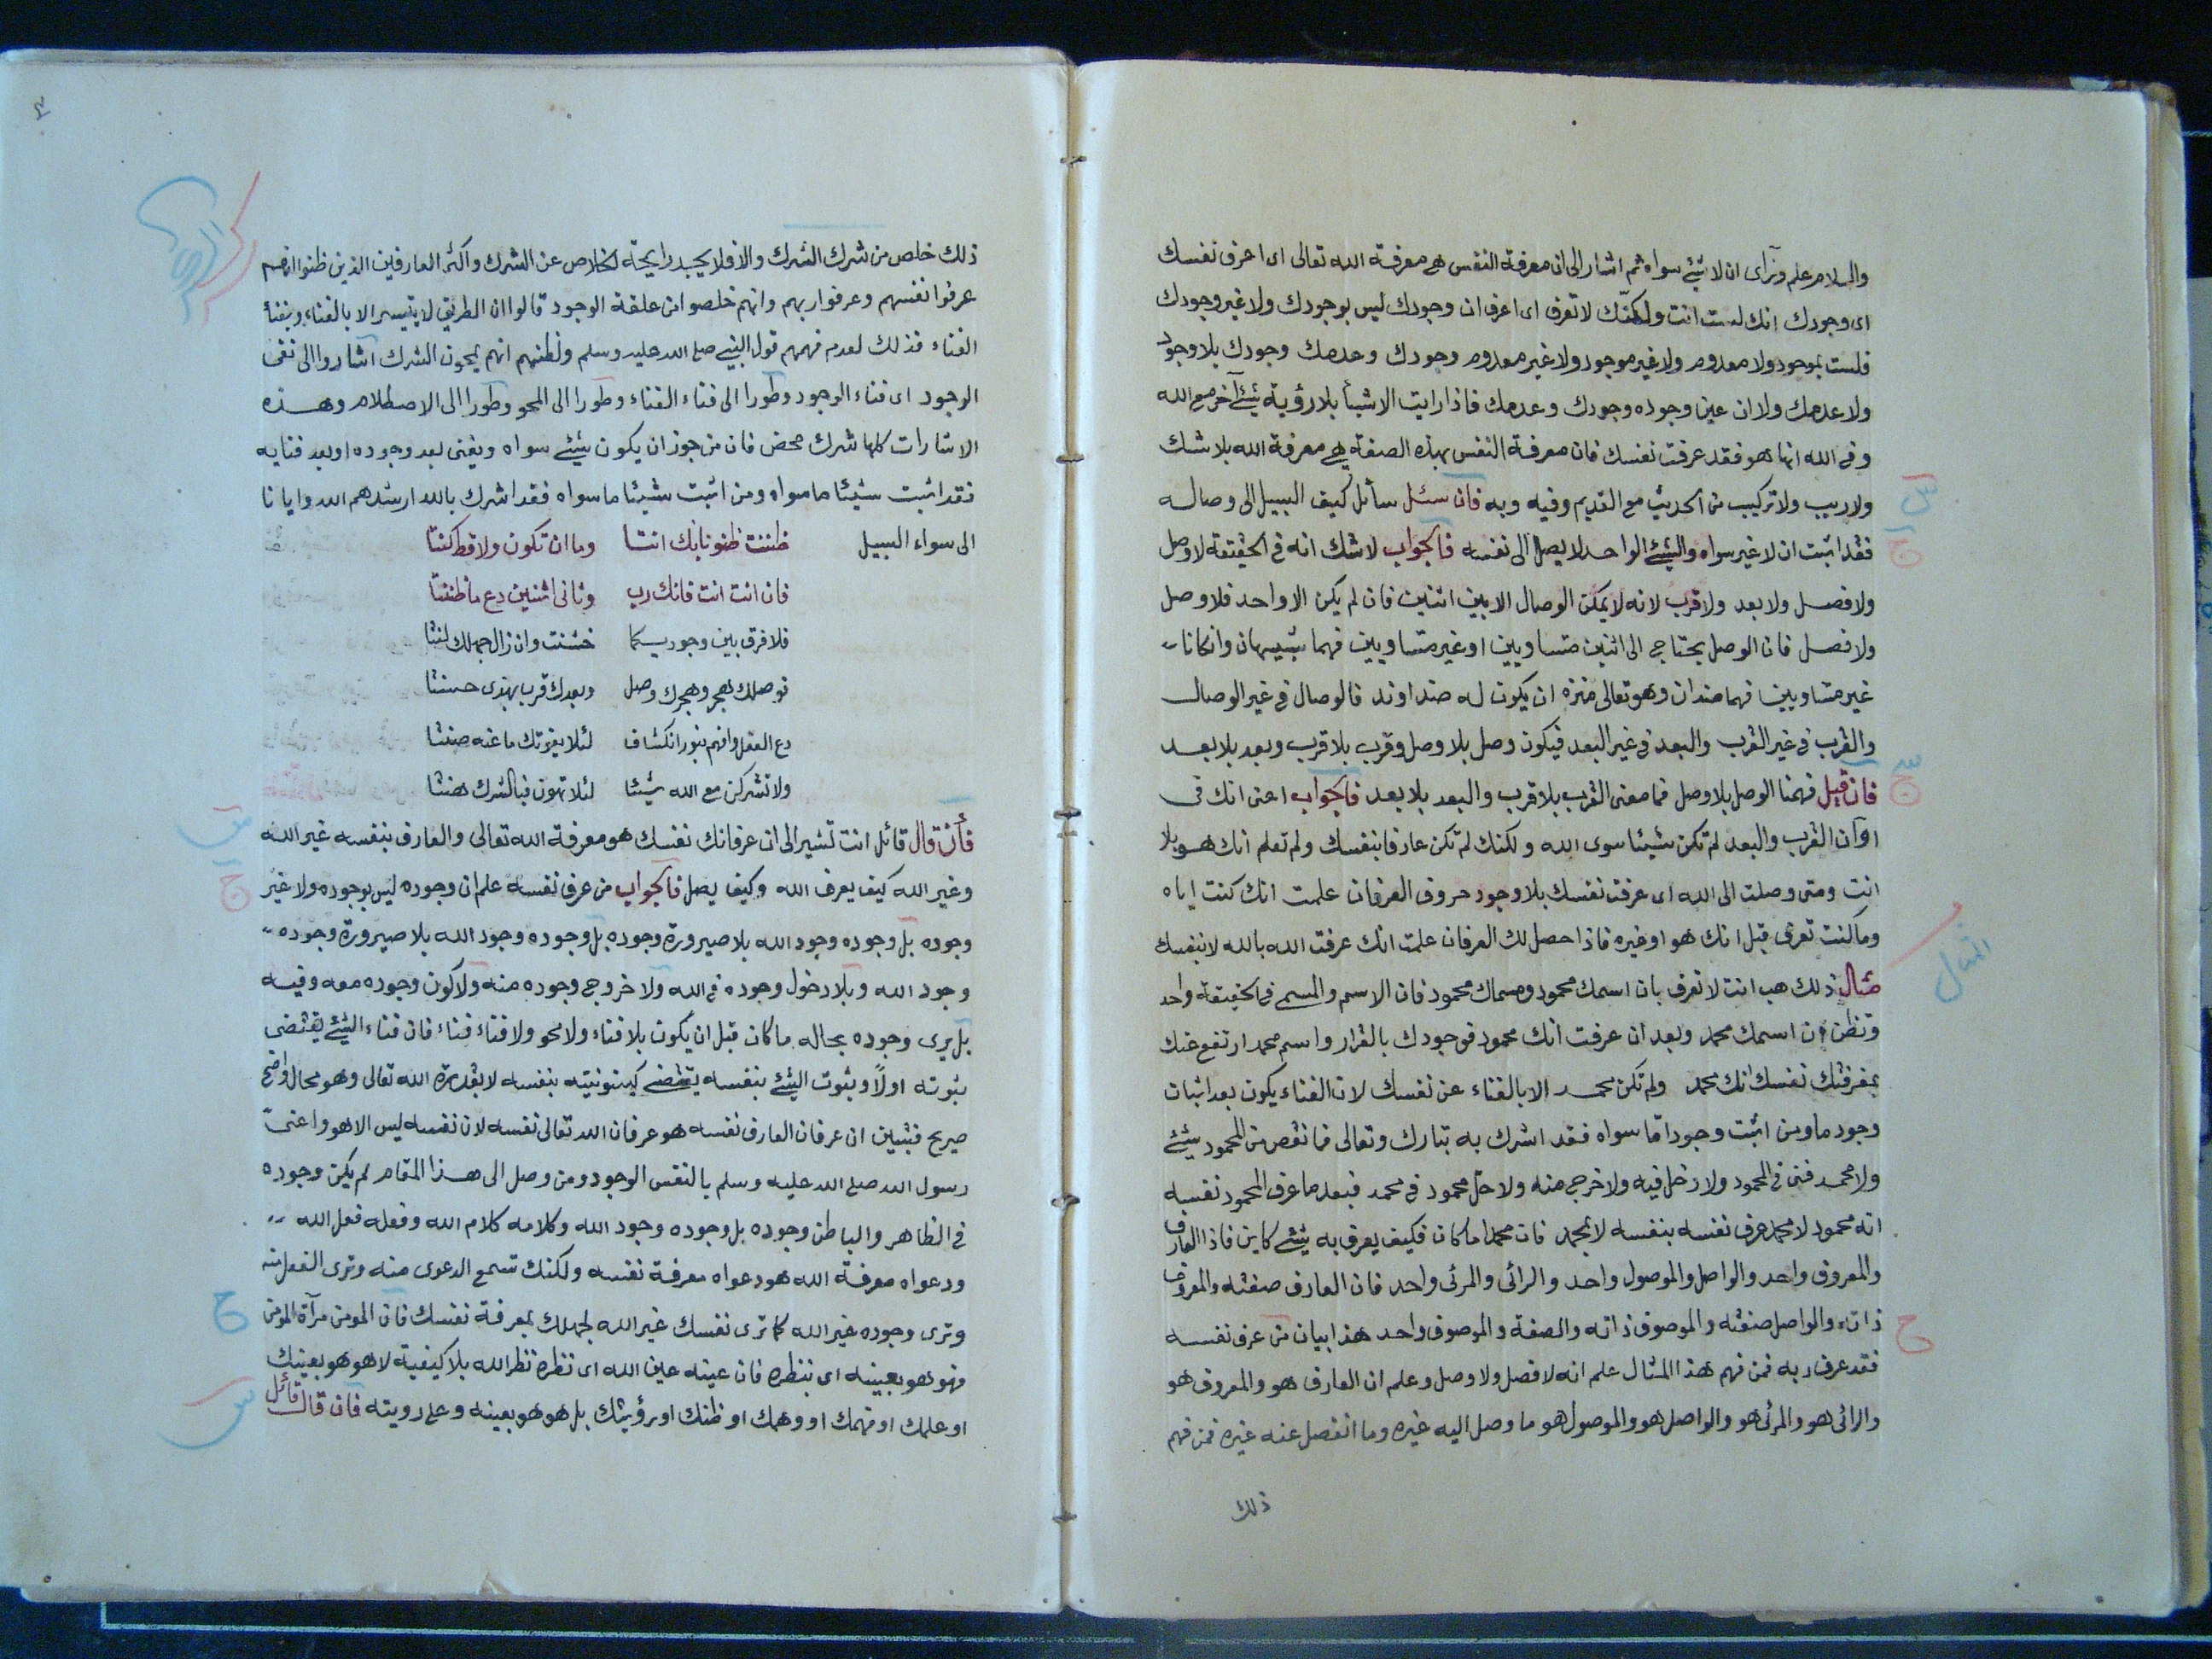 والسلام علم ونرای ان لا شئ سواه ثم اشار الی ان معرفة النفس هی معرفة الله تعالی ای اعرف نفسك
ای وجودك انك لست انت ولكنّك لا تعرف ای اعرف ان وجودك لیس بوجودك ولا غیر وجودك
فلست بموجود ولا معدوم ولا غیر موجود ولا غیر معدوم وجودك وعدمك وجودك بلا وجود
ولا عدمك ولا ان عین وجوده وجودك وعدمك فاذا رایت الاشیأ بلا رؤیة شئ آخر مع الله
وفی الله انها هو فقد عرفت نفسك فان معرفة النفس بهذه الصفة هی معرفة الله بلا شك
ولا ریب ولا تركیب من الحدیث مع القدیم وفیه وبه فان سئل سأئل كیف السبیل الی وصاله
فقد اثبت ان لا غیر سواه والشئ الواحد لا یصل الی نفسه فالجواب لا شك انه فی الحقیقة لا وصل
ولا فصل ولا بعد ولا قرب لانه لا یمكن الوصال الا بین اثنین فان لم یكن الا واحد فلا وصل
ولا فصل فان الوصل یحتاج الی اثنین متساویین او غیر متساویین فهما شبیهان وان كانا
غیر متساویین فهما ضدان وهو تعالی منزه ان یكون له ضد او ند فالوصال فی غیر الوصال
والقرب فی غیر القرب والبعد فی غیر البعد فیكون وصل بلا وصل وقرب بلا قرب وبعد بلا بعد
فان قیل فهمنا الوصل بلا وصل فما معنی القرب بلا قرب والبعد بلا بعد فالجواب اعنی انك فی
اوآن القرب والبعد لم تكن شیئا سوی الله ولكنك لم تكن عارفا بنفسك ولم تعلم انك هو بلا
انت ومتی وصلت الی الله ای عرفت نفسك بلا وجود حروف العرفان علمت انك كنت ایاه
وما كنت تعرف قبل انك هو او غیره فاذا حصل لك العرفان علمت انك عرفت الله بالله لا بنفسك
مثال ذلك هب انت لا تعرف بان اسمك محمود ومسماك محمود فان الاسم والمسمی فی الحقیقة واحد
وتظن ان اسمك محمد وبعد ان عرفت انك محمود فوجودك بالقرار واسم محمد ارتفع عنك
بمعرفتك نفسك انك محمد ولم تكن محمد الا بالفناء عن نفسك لان الفناء یكون بعد اثبات
وجود ما ومن اثبت وجودا ما سواه فقد اشرك به تبارك وتعالی فما نقص من المحمود شئ
ولا محمد فنی فی المحمود ولا دخل فیه ولا خرج منه ولا حلّ محمود فی محمد فبعد ما عرف المحمود نفسه
انه محمود لا محمد عرف نفسه بنفسه لا بمحمد فان محمدا ما كان فكیف یعرف به شئ كاین فاذا العارف
والمعروف واحد والواصل والموصول واحد والرائی والمرئی واحد فان العارف صفته والمعروف
ذاته والواصل صفته والموصوف ذاته والصفة والموصوف واحد هذا بیان من عرف نفسه
فقد عرف ربه فمن فهم هذا المثال علم انه لا فصل ولا وصل وعلم ان العارف هو والمعروف هو
والرائی هو والمرئی هو والواصل هو والموصول هو ما وصل الیه غیره وما انفصل عنه غیره فمن فهم
ذلك
المثال
ذلك خلص من شرك الشرك والا فلا یجد رایحة الخلاص عن الشرك واكثر العارفین الذین ظنوا انهم
عرفوا نفسهم وعرفوا ربهم وانهم خلصوا من علقة الوجود قالوا ان الطریق لا یتیسر الا بالفناء وبفنأ
الفناء فذلك لعدم فهمهم قول النبی صلی الله علیه وسلم ولظنهم انهم یمحون الشرك اشاروا الی نفی
الوجود ای فناء الوجود وطورا الی فناء الفناء وطورا الی المحو وطورا الی الاصطلام وهذه
الاشارات كلها شرك محض فان من جوز ان یكون شئ سواه ویفنی بعد وجوده او بعد فنایه
فقد اثبت شیئا ما سواه ومن اثبت شیئا ما سواه فقد اشرك بالله ارشدهم الله وایانا
الی سواء السبیل ظننت ظنونا بانك انتا وما ان تكون ولا قط كنتا
فان انت انت فانك رب وثانی اثنین دع ما ظننتا
فلا فرق بین وجودیكما خشنت وان زال جهلك لنتا
فوصلك هجر وهجرك وصل وبعدك قرب بهذی حسنتا
دع العقل وافهم بنور انكشاف لئلا یفوتك ما عنه صنتا
ولا تشركن مع الله شیئا لئلا تهون فبالشرك هنتا
فأن قال قائل انت تشیر الی ان عرفانك نفسك هو معرفة الله تعالی والعارف بنفسه غیر الله
وغیر الله كیف یعرف الله وكیف یصل فالجواب من عرف نفسه علم ان وجوده لیس بوجوده ولا غیر
وجوده بل وجوده وجود الله بلا صیرورة وجوده بل وجوده وجود الله بلا صیرورة وجوده
وجود الله وبلا دخول وجوده فی الله ولا خروج وجوده منه ولا كون وجوده معه وفیه
بل یری وجوده بحاله ما كان قبل ان یكون بلا فناء ولا محو ولا فناء فناء فان فناء الشئ یقتضی
ثبوته اولاً وثبوت الشئ بنفسه یقتضی كینونیته بنفسه لا بقدرة الله تعالی وهو محال واضح
صریح فتبین ان عرفان العارف نفسه هو عرفان الله تعالی نفسه لان نفسه لیس الا هو واعنی
رسول الله صلی الله علیه وسلم بالنفس الوجود ومن وصل الی هذا المقام لم یكن وجوده
فی الظاهر والباطن وجوده بل وجوده وجود الله وكلامه كلام الله وفعله فعل الله
ودعواه معرفة الله هو دعواه معرفة نفسه ولكنك تسمع الدعوی منه وتری الفعل منه
وتری وجوده غیر الله كما تری نفسك غیر الله لجهلك بمعرفة نفسك فان المومن مرآة المومن
فهو هو بعینه ای بنظره فان عینه عین الله ای نظره نظر الله بلا كیفیة لا هو هو بعینك
او علمك او فهمك او وهمك او ظنك او رؤیتك بل هو هو بعینه وعلمه ورویته فان قال قائل